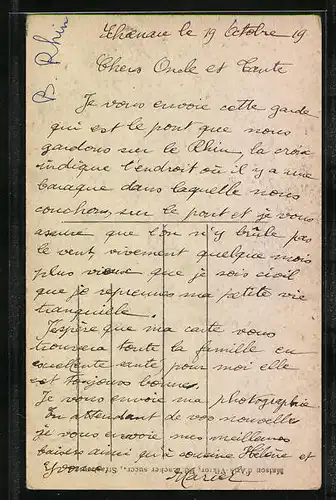 B. Rhin
le 19 Octobre 19
Chers Oncle et Tante
Je vous envoie cette garde
qui est le pont que nous
gardons sur le Rhin, la croix
indique l'endroit où il y a une
baraque dans laquelle nous
couchons, sur le pont et je vous
assure que l'on n'y brûle pas
le vent, vivement quelque mois
plus que je sois civil
que je reprennes ma petite vie
tranquille.
J'espère que ma carte vous
trouvera toute la famille en
excellente santé, pour moi elle
est toujours bonnes.
Je vous envoie ma photographie
En attendant de vos nouvelles
je vous envoie mes meilleures
baisers ainsi qu'à cousine Hélène et
Yvonne
Marcel
Maison d'Art